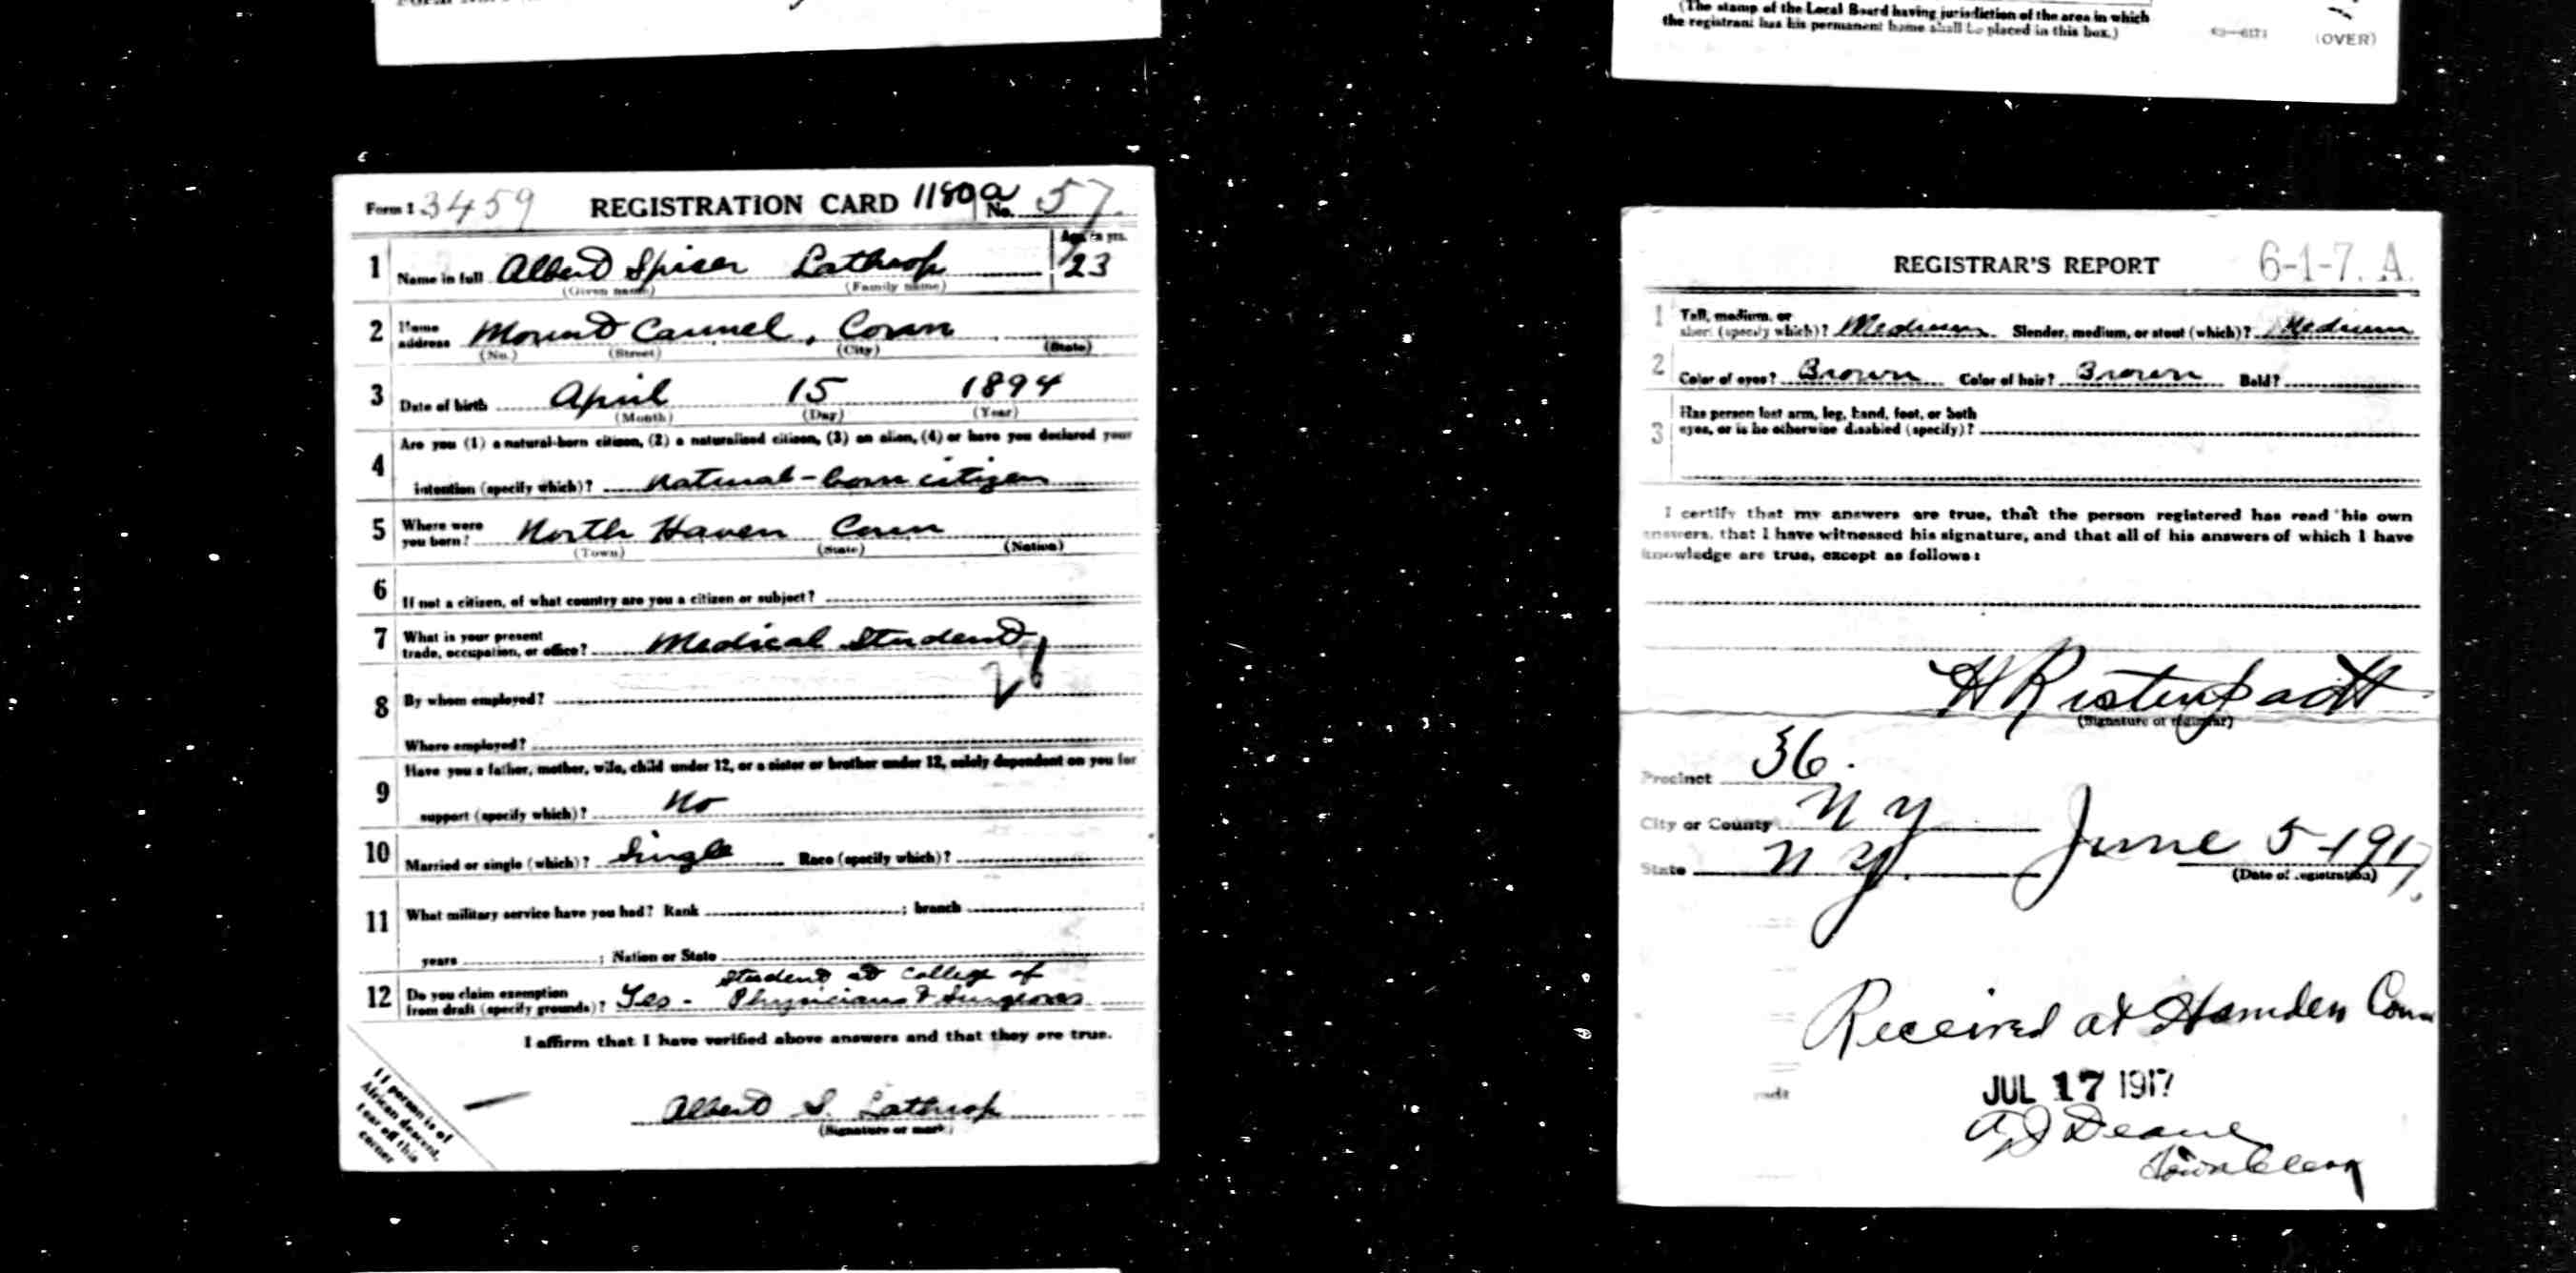 (The stamp of the Local Board having jurisdiction of the area in which
the registrant has his permanent home shall be placed in this box.)
(OVER)
Form 1 3459 REGISTRATION CARD 1180 a No. 57
Age, in yrs.
1 Name in full Albert Spicer Lathrop 23
(Given name) (Family name)
2 Home address Mount Carmel, Conn
(No.) (Street) (City) (State)
3 Date of birth April 15 1894
(Month) (Day) (Year)
Are you (1) a natural-born citizen, (2) a naturalized citizen, (3) an alien, (4) or have you declared your
4 intention (specify which)? natural-born citizen
5 Where were you born? North Haven Conn
(Town) (State) (Nation)
6 If not a citizen, of what country are you a citizen or subject?
7 What is your present
trade, occupation, or office? Medical Student
8 By whom employed?
Where employed?
Have you a father, mother, wife, child under 12, or a sister or brother under 12, solely dependent on you for
9 support (specify which)? No
10 Married or single (which)? Single Race (specify which)?
11 What military service have you had? Rank ; branch
years ; Nation or State
Student at College of
12 Do you claim exemption
from draft (specify grounds)? Yes - Physicians & Surgeons
I affirm that I have verified above answers and that they are true.
Albert S. Lathrop
(Signature or mark)
If person is of
African descent,
tear off this
corner
REGISTRAR'S REPORT 6-1-7. A.
1 Tall, medium, or
short (specify which)? Medium Slender, medium, or stout (which)? Medium
2 Color of eyes? Brown Color of hair? Brown Bald?
3 Has person lost arm, leg, hand, foot, or both
eyes, or is he otherwise disabled (specify)?
I certify that my answers are true, that the person registered has read his own
answers, that I have witnessed his signature, and that all of his answers of which I have
knowledge are true, except as follows:
H Ristenpartt
(Signature of registrar)
Precinct 36.
City or County N Y
State N Y. June 5-1917.
(Date of registration)
Received at Hamden Conn
JUL 17 1917
Deane
Town Clerk